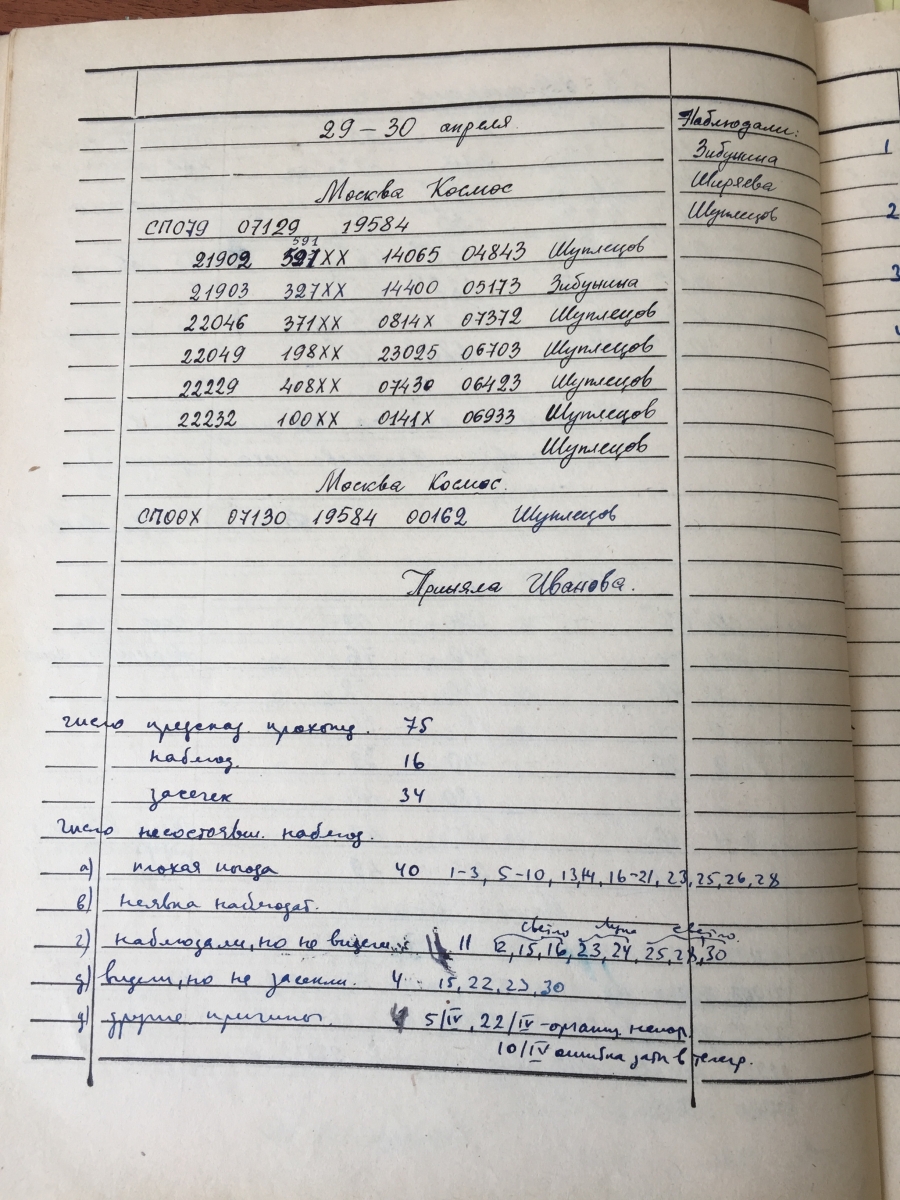 29 – 30 апреля.
Наблюдали:
Зибунина
Ширяева
Шуплецов
Москва Космос
СПО79 07129 19584
591
21902 527XX 14065 04843 Шуплецов
21903 327XX 14400 05173 Зибунина
22046 371XX 0814X 07372 Шуплецов
22049 198XX 23025 06703 Шуплецов
22229 408XX 07430 06423 Шуплецов
22232 100XX 0141X 06933 Шуплецов
Шуплецов
Москва Космос.
СПООX 07130 19584 00162 Шуплецов
Приняла Иванова.
число предсказ. прохожд. 75
наблюд. 16
засечек 34
число несостоявш. наблюд.
а) плохая погода 40 1-3, 5-10, 13,14, 16-21, 23, 25, 26, 28
в) неявка наблюдат.
светло Луна светло
г) наблюдали, но не видели 11 12, 15, 16, 23, 24, 25, 28, 30
д) видели, но не засекли. 4 15, 22, 23, 30
д) другие причины. 4 5/IV, 22/IV -организ. непол.
10/IV ошибка даты в телегр.